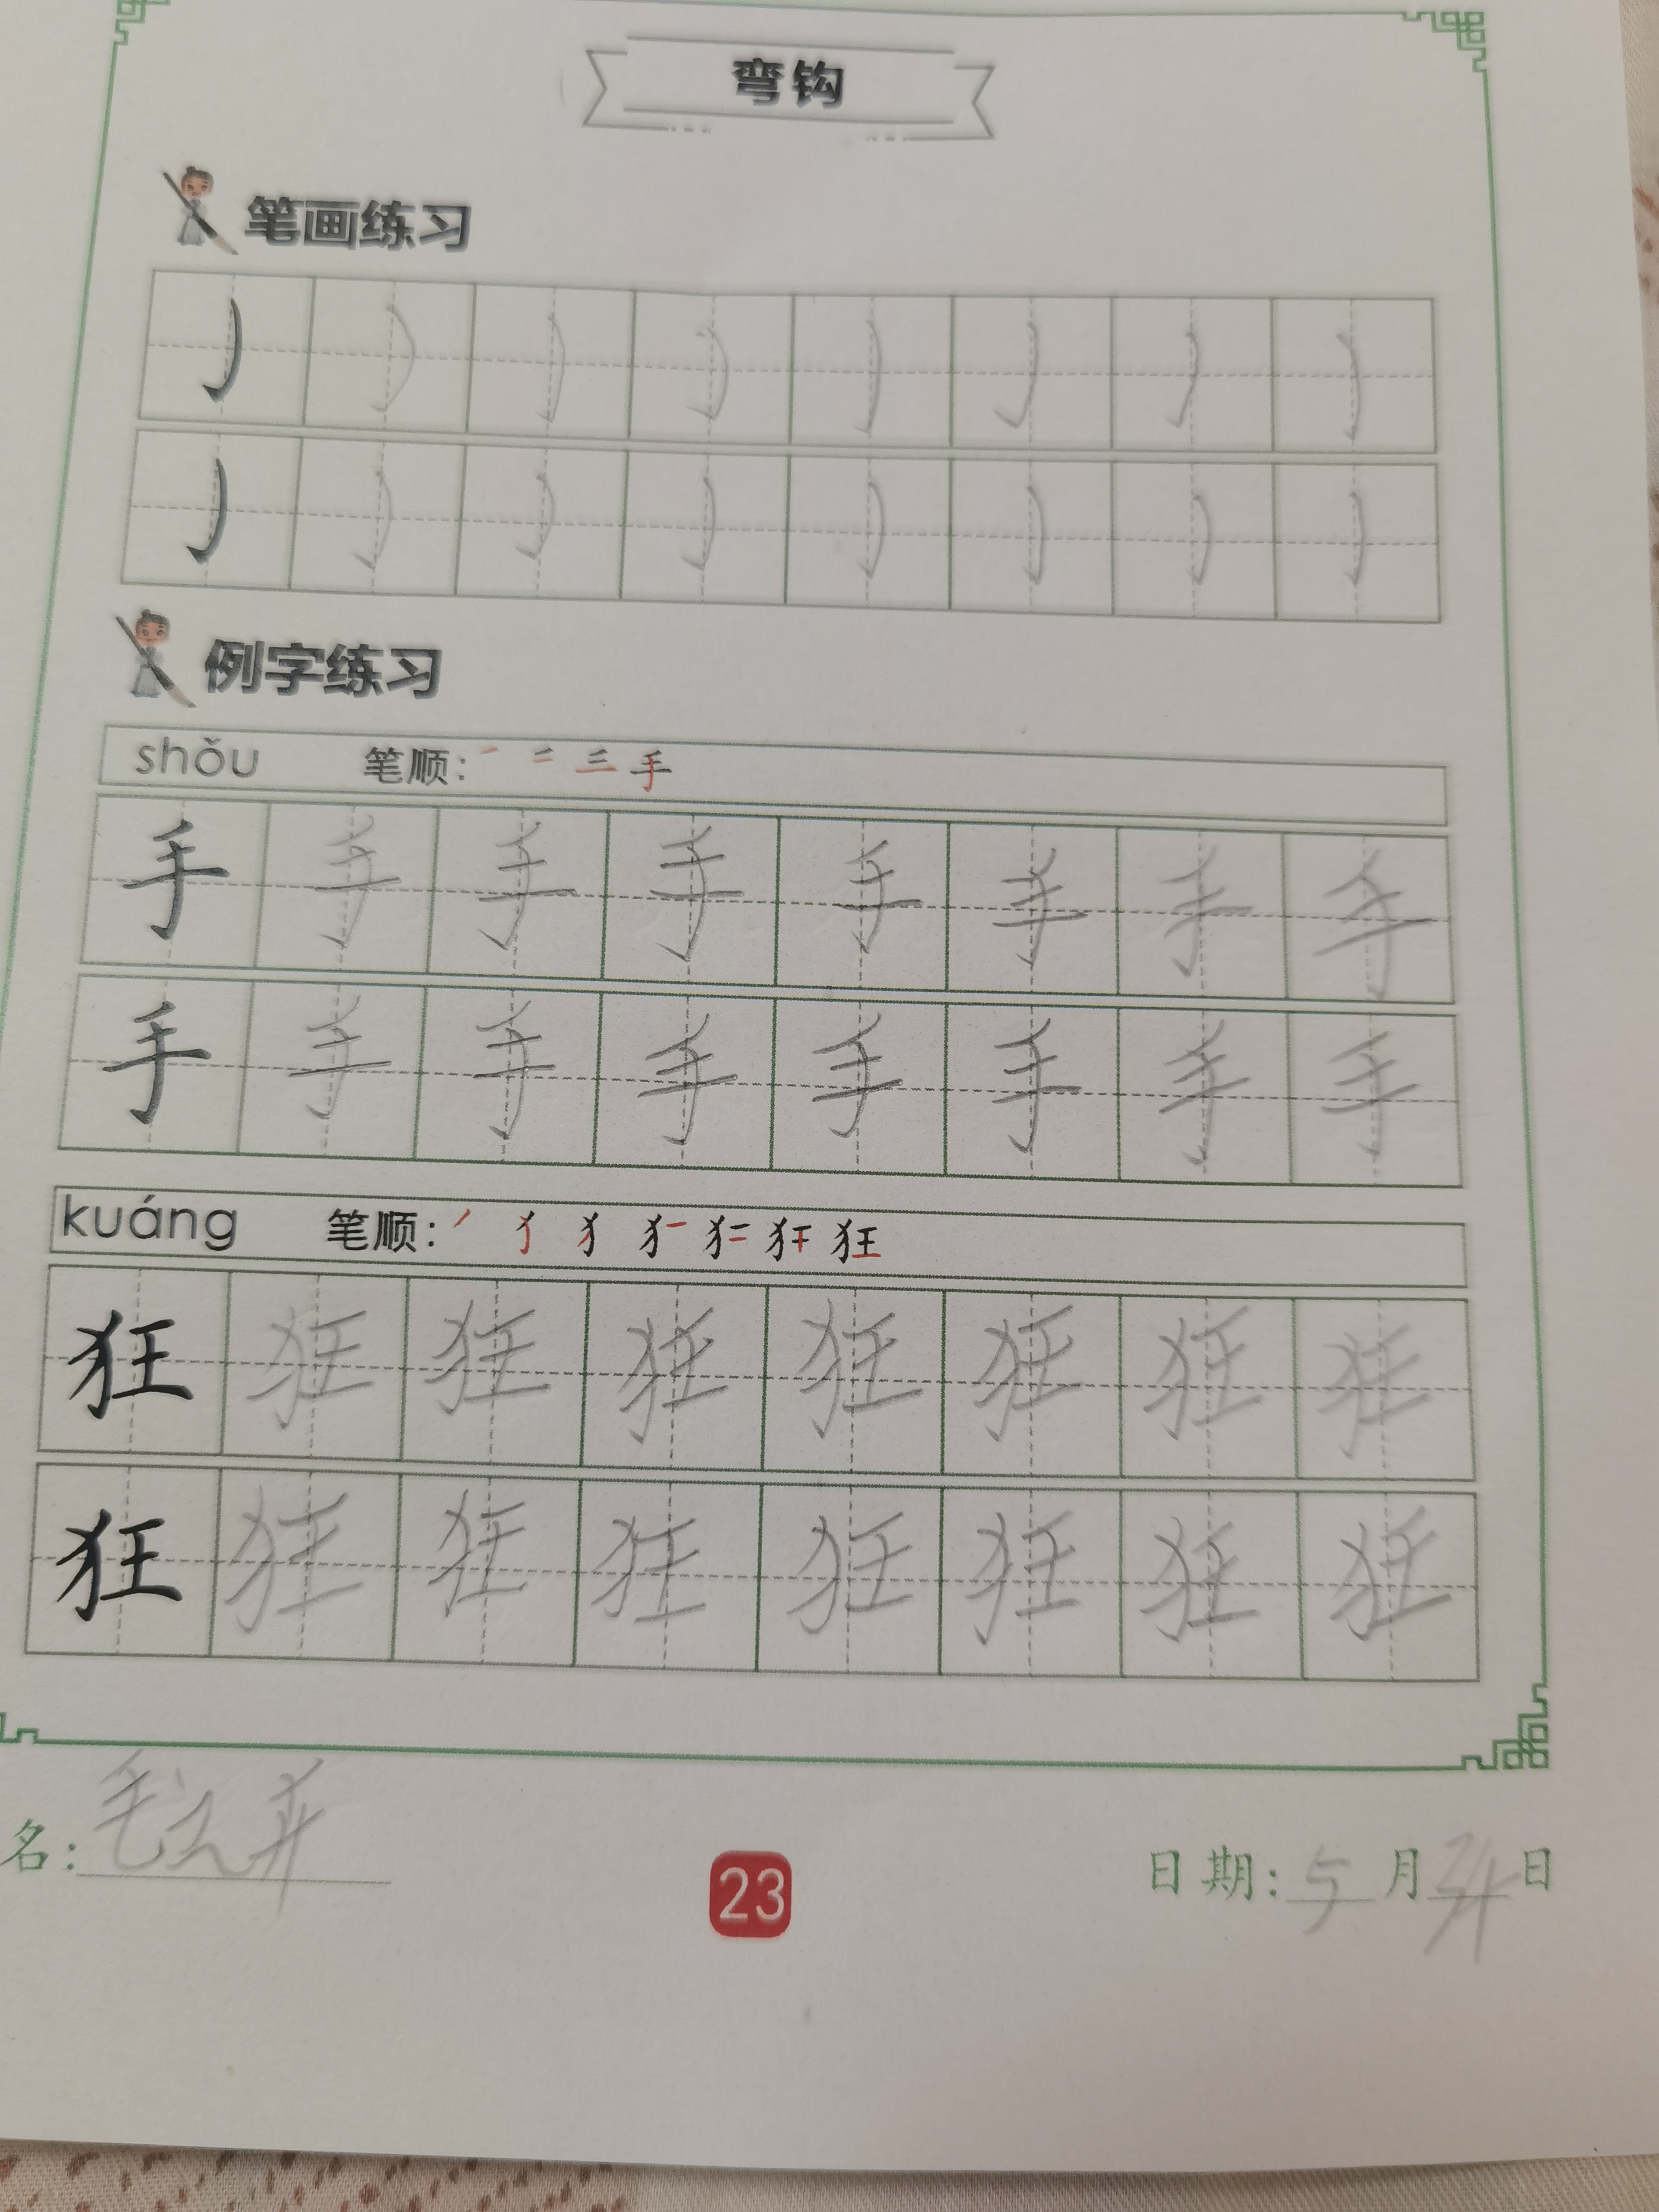 弯钩
笔画练习
例字练习
shǒu 笔顺: 一 二 三 手
手 手 手 手 手 手 手 手
手 手 手 手 手 手 手 手
kuáng 笔顺: 狂
狂 狂 狂 狂 狂 狂 狂 狂
狂 狂 狂 狂 狂 狂 狂 狂
名: 毛
23
日期: 5 月 日